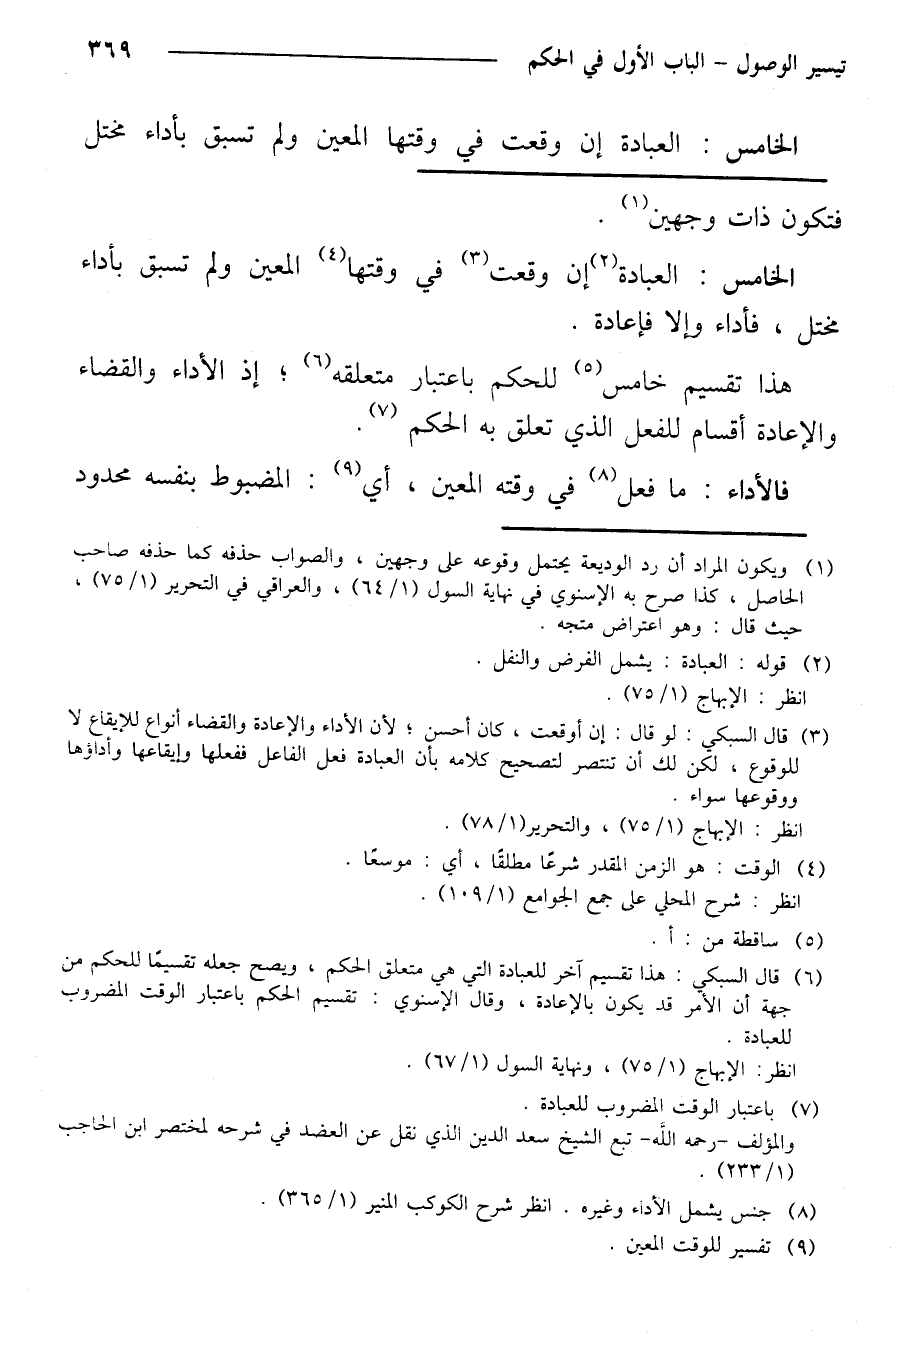 تيسير الوصول – الباب الأول في الحكم ٣٦٩
الخامس : العبادة إن وقعت في وقتها المعين ولم تسبق بأداء مختل
فتكون ذات وجهين(١) .
الخامس : العبادة(٢) إن وقعت(٣) في وقتها(٤) المعين ولم تسبق بأداء
مختل ، فأداء وإلا فإعادة .
هذا تقسيم خامس(٥) للحكم باعتبار متعلقه(٦) ؛ إذ الأداء والقضاء
والإعادة أقسام للفعل الذي تعلق به الحكم (٧).
فالأداء : ما فعل(٨) في وقته المعين ، أي(٩) : المضبوط بنفسه محدود
(١) ويكون المراد أن رد الوديعة يحتمل وقوعه على وجهين ، والصواب حذفه كما حذفه صاحب
الحاصل ، كذا صرح به الإسنوي في نهاية السول (٦٤/١) ، والعراقي في التحرير (٧٥/١) ،
حيث قال : وهو اعتراض متجه .
(٢) قوله : العبادة : يشمل الفرض والنفل .
انظر : الإبهاج (٧٥/١) .
(٣) قال السبكي : لو قال : إن أوقعت ، كان أحسن ؛ لأن الأداء والإعادة والقضاء أنواع للإيقاع لا
للوقوع ، لكن لك أن تنتصر لتصحيح كلامه بأن العبادة فعل الفاعل ففعلها وإيقاعها وأداؤها
ووقوعها سواء .
انظر : الإبهاج (٧٥/١) ، والتحرير(٧٨/١) .
(٤) الوقت : هو الزمن المقدر شرعًا مطلقًا ، أي : موسعًا .
انظر : شرح المحلي على جمع الجوامع (١٠٩/١) .
(٥) ساقطة من : أ .
(٦) قال السبكي : هذا تقسيم آخر للعبادة التي هي متعلق الحكم ، ويصح جعله تقسيمًا للحكم من
جهة أن الأمر قد يكون بالإعادة ، وقال الإسنوي : تقسيم الحكم باعتبار الوقت المضروب
للعبادة .
انظر: الإبهاج (٧٥/١) ، ونهاية السول (٦٧/١) .
(٧) باعتبار الوقت المضروب للعبادة .
والمؤلف -رحمه اللَّه- تبع الشيخ سعد الدين الذي نقل عن العضد في شرحه لمختصر ابن الحاجب
(٢٣٣/١) .
(٨) جنس يشمل الأداء وغيره . انظر شرح الكوكب المنير (٣٦٥/١) .
(٩) تفسير للوقت المعين .